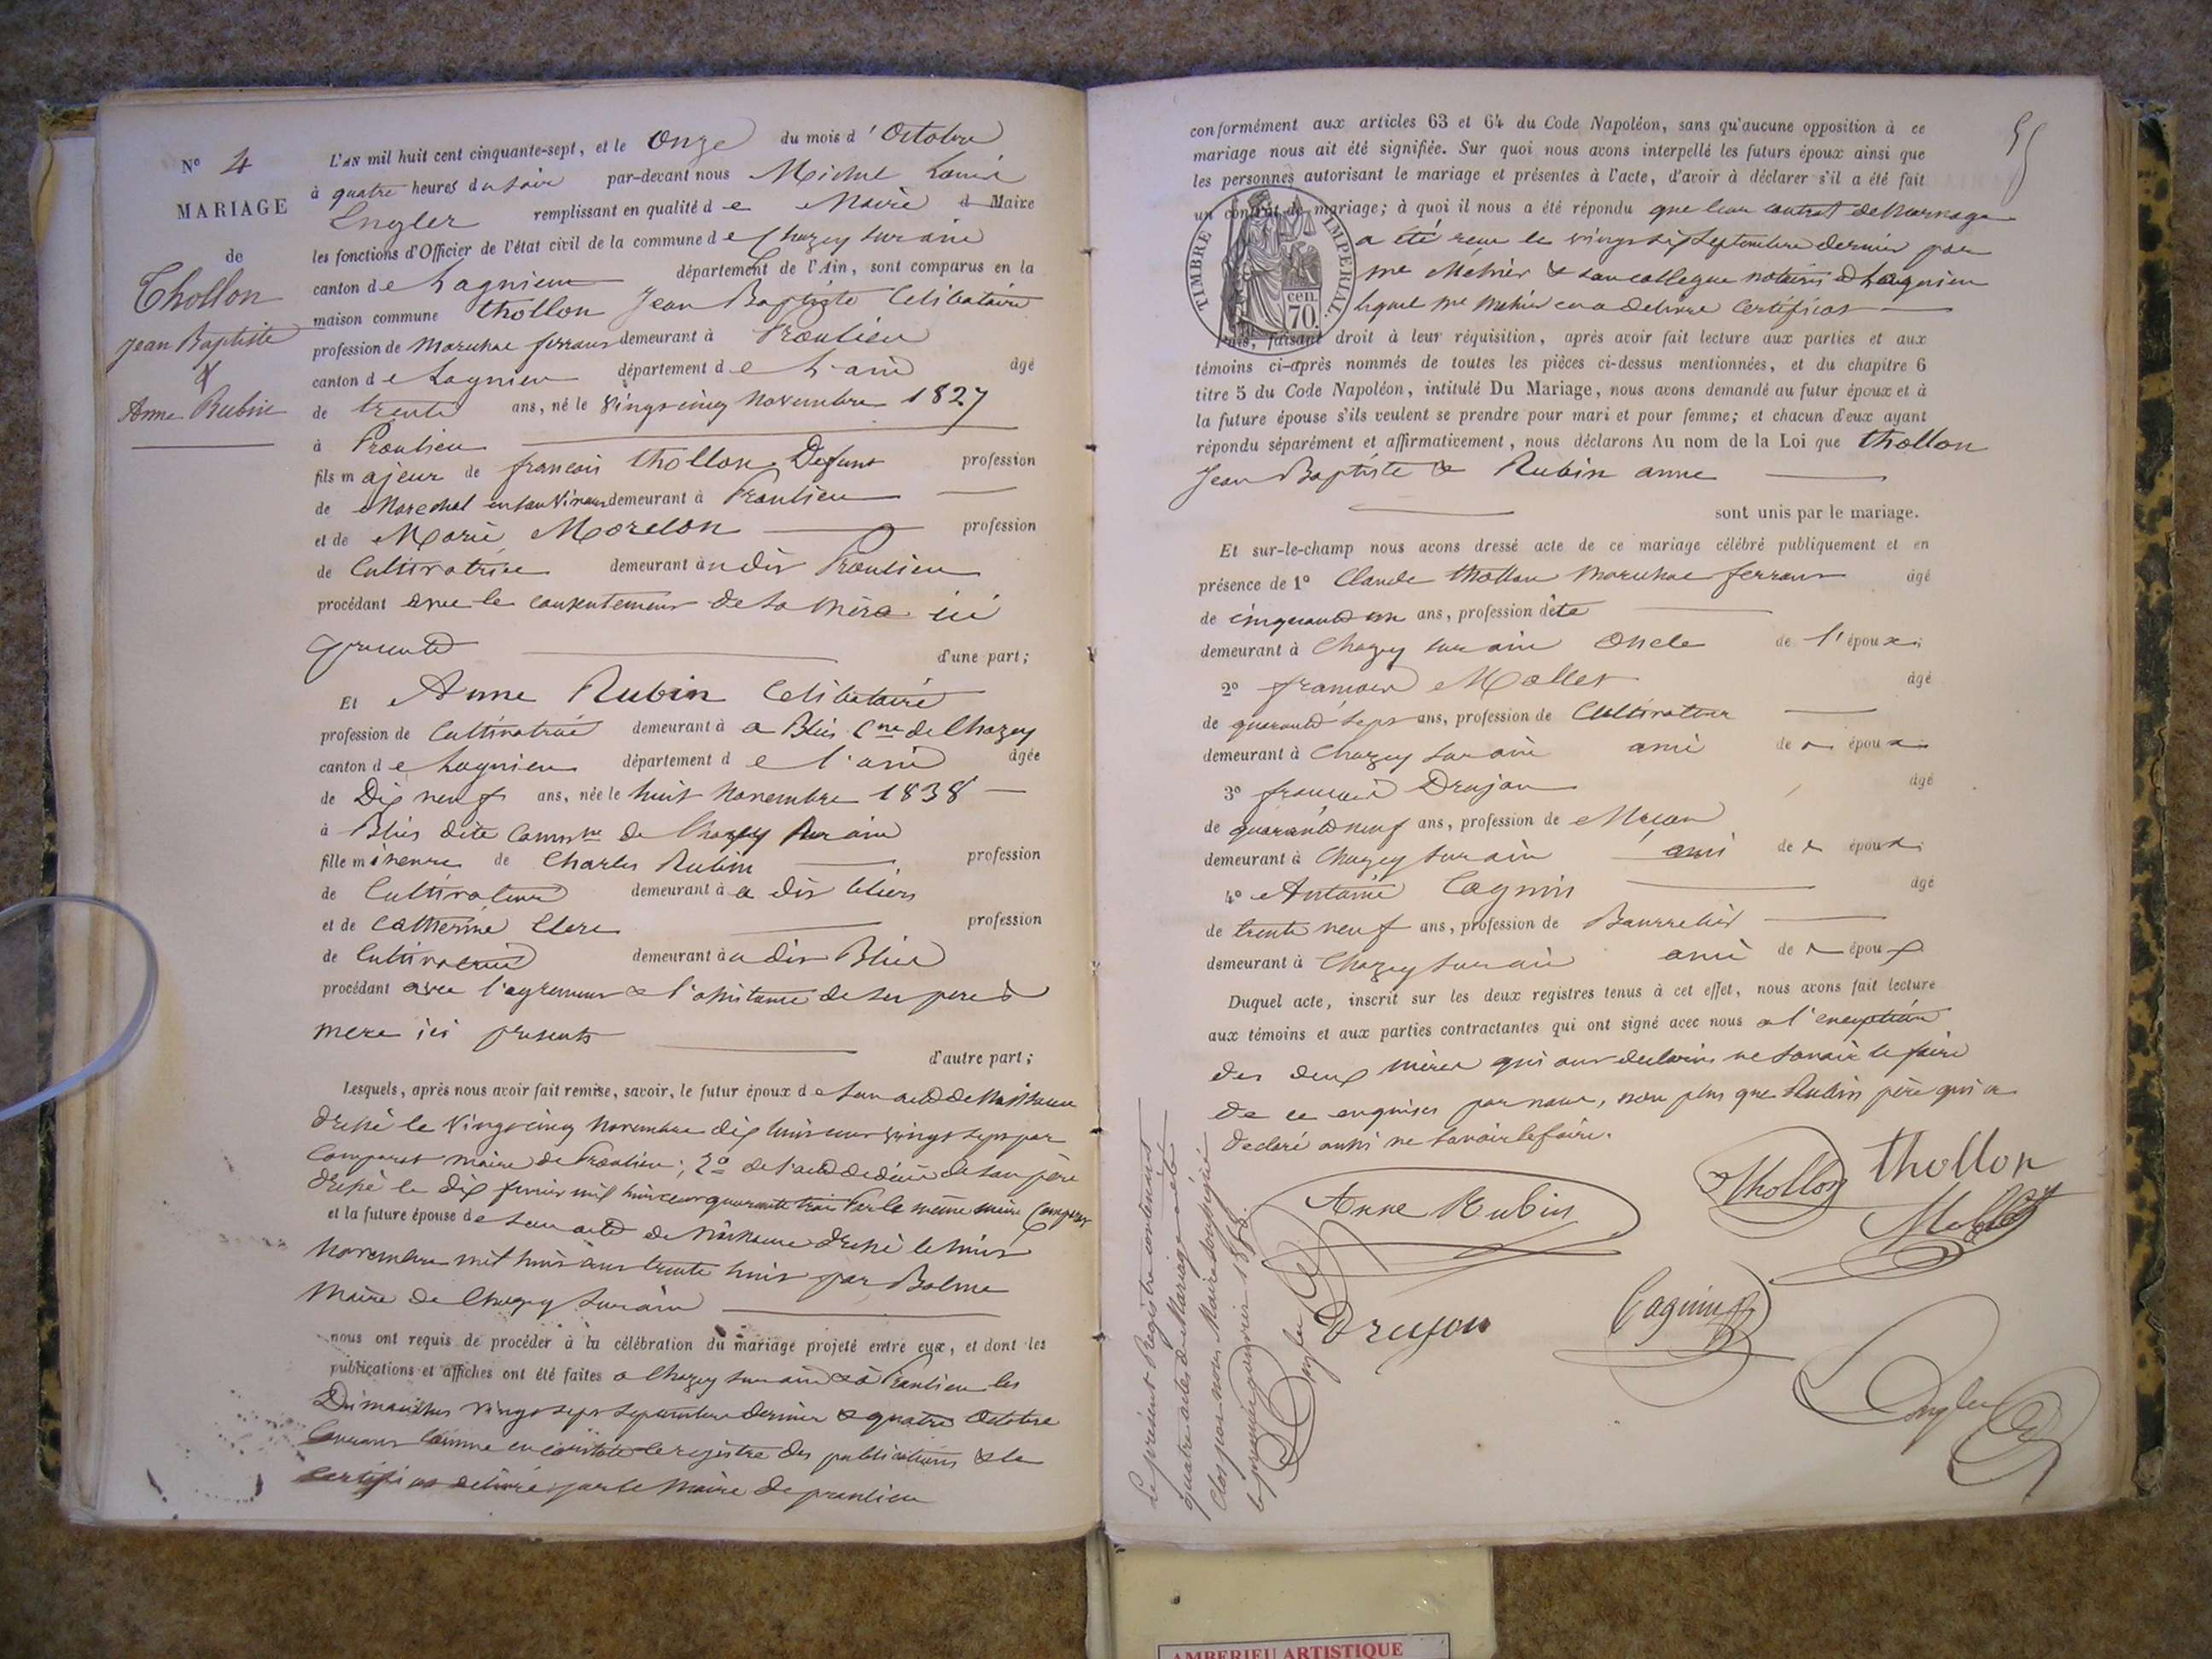 N° 4
MARIAGE
de
Thollon
Jean Baptiste
&
Anne Rubin
L'AN mil huit cent cinquante-sept, et le Onze du mois d'Octobre
à quatre heures du soir par-devant nous Michel Louis
Engler remplissant en qualité de Maire d Maire
les fonctions d'Officier de l'état civil de la commune de Chazey sur ain
canton de Lagnieu département de l'Ain, sont comparus en la
maison commune thollon Jean Baptiste Celibataire
profession de Marechal ferrant demeurant à Proulieu
canton de Lagnieu département de L'ain âgé
de trente ans, né le Vingt cinq Novembre 1827
à Proulieu
fils majeur de francois thollon Defunt profession
de Marechal en son Vivant demeurant à Proulieu
et de Marie Morelon profession
de Cultivatrice demeurant à u dit Proulieu
procédant avec le consentement de sa Mère ici
presente d'une part;
Et Anne Rubin Celibataire
profession de Cultivatrice demeurant à a Blies Cne de Chazey
canton de Lagnieu département de l'ain âgée
de Dix neuf ans, née le huit Novembre 1838
à Blies dite Commne de Chazey sur ain
fille mineure de Charles Rubin profession
de Cultivateur demeurant à a dit bliers
et de Catherine Clerc profession
de Cultivatrice demeurant à u dit Blies
procédant avec l'agrement & l'assistance de ses pere &
mere ici presents d'autre part;
Lesquels, après nous avoir fait remise, savoir, le futur époux de son acte de Naissance
dressé le Vingt cinq Novembre dix huit cent vingt sept par
Comparat maire de Proulieu; 2° de l'acte de décès de son père
dressé le dix fevrier mil huit cent quarante trois Par le même maire Comparat
et la future épouse de son acte de Naissance dressé le huit
Novembre mil huit cent trente huit par Bolme
Maire de Chazey sur ain
nous ont requis de procéder à la célébration du mariage projeté entre eux, et dont les
publications et affiches ont été faites a Chazey sur ain & à Proulieu les
Dimanches vingt sept septembre dernier & quatre Octobre
Courant comme en constate le registre des publications & le
certificat delivré par le Maire de proulieu
55
conformément aux articles 63 et 64 du Code Napoléon, sans qu'aucune opposition à ce
mariage nous ait été signifiée. Sur quoi nous avons interpellé les futurs époux ainsi que
les personnes autorisant le mariage et présentes à l'acte, d'avoir à déclarer s'il a été fait
un contrat de mariage; à quoi il nous a été répondu que leur contrat de Mariage
a été recu le vingt six Septembre dernier par
me Métrier & son collegue notaires à Lagnieu
lequel me Métrier en a delivré Certificat
TIMBRE IMPERIAL
70 cen.
Puis, faisant droit à leur réquisition, après avoir fait lecture aux parties et aux
témoins ci-après nommés de toutes les pièces ci-dessus mentionnées, et du chapitre 6
titre 5 du Code Napoléon, intitulé Du Mariage, nous avons demandé au futur époux et à
la future épouse s'ils veulent se prendre pour mari et pour femme; et chacun d'eux ayant
répondu séparément et affirmativement, nous déclarons Au nom de la Loi que thollon
Jean Baptiste & Rubin anne
sont unis par le mariage.
Et sur-le-champ nous avons dressé acte de ce mariage célébré publiquement et en
présence de 1° Claude thollon Marechal ferrant âgé
de cinquante un ans, profession dite
demeurant à Chazey sur ain Oncle de l'époux;
2° francois Mollet âgé
de quarante sept ans, profession de Cultivateur
demeurant à Chazey sur ain ami de époux
3° francois Drujon âgé
de quarante neuf ans, profession de Maçon
demeurant à Chazey sur ain ami de époux
4° Antoine Cagnin âgé
de trente neuf ans, profession de Bourrelier
demeurant à Chazey sur ain ami de époux
Duquel acte, inscrit sur les deux registres tenus à cet effet, nous avons fait lecture
aux témoins et aux parties contractantes qui ont signé avec nous a l'exception
des deux mères qui ont declaré ne savoir le faire
de ce enquises par nous, non plus que Rubin père qui a
declaré aussi ne savoir le faire.
Anne Rubin
Thollon
thollon
Mollet
Drujon
Cagnin
Engler
Le présent Registre contenant
quatre actes de Mariage a été
Clos par nous Maire soussigné
le premier janvier 1858.
Engler
AMBERIEU ARTISTIQUE